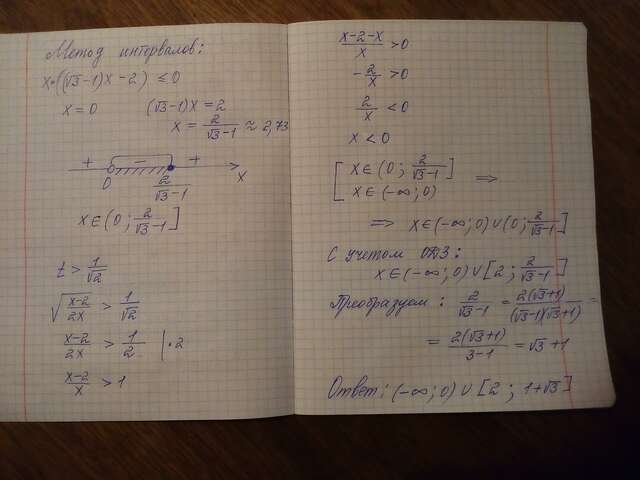 Метод интервалов:
x·((√3-1)x-2) ≤ 0
x = 0    (√3-1)x = 2
x = 2/(√3-1) ≈ 2,73
+ − +
0    2/(√3-1)    x
x∈(0; 2/(√3-1)]
t > 1/√2
√((x-2)/2x) > 1/√2
(x-2)/2x > 1/2 |·2
(x-2)/x > 1
(x-2-x)/x > 0
-2/x > 0
2/x < 0
x < 0
[ x∈(0; 2/(√3-1)]
x∈(-∞;0) ⟹
⟹ x∈(-∞;0)∪(0; 2/(√3-1)]
С учетом ОДЗ:
x∈(-∞;0)∪[2; 2/(√3-1)]
Преобразуем: 2/(√3-1) = 2(√3+1)/((√3-1)(√3+1)) =
= 2(√3+1)/(3-1) = √3+1
Ответ: (-∞;0)∪[2; 1+√3]